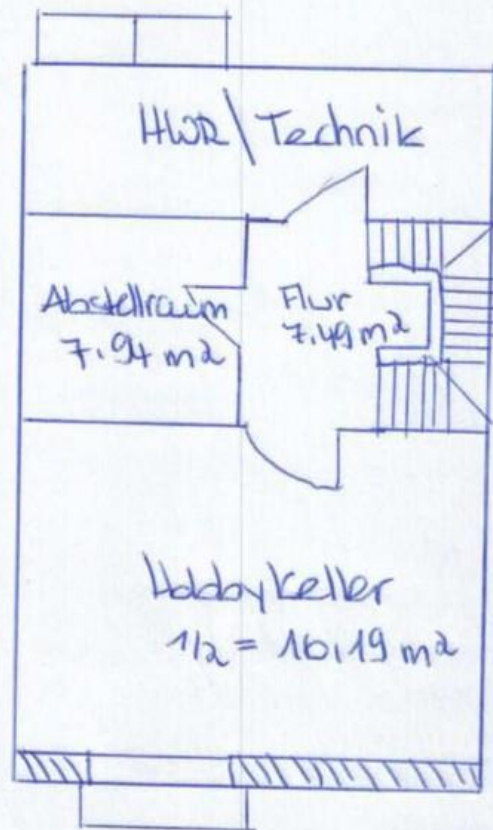 HWR\Technik
Abstellraum
7.94 m2
Flur
7.49 m2
Hobbykeller
1/2 = 16,19 m2